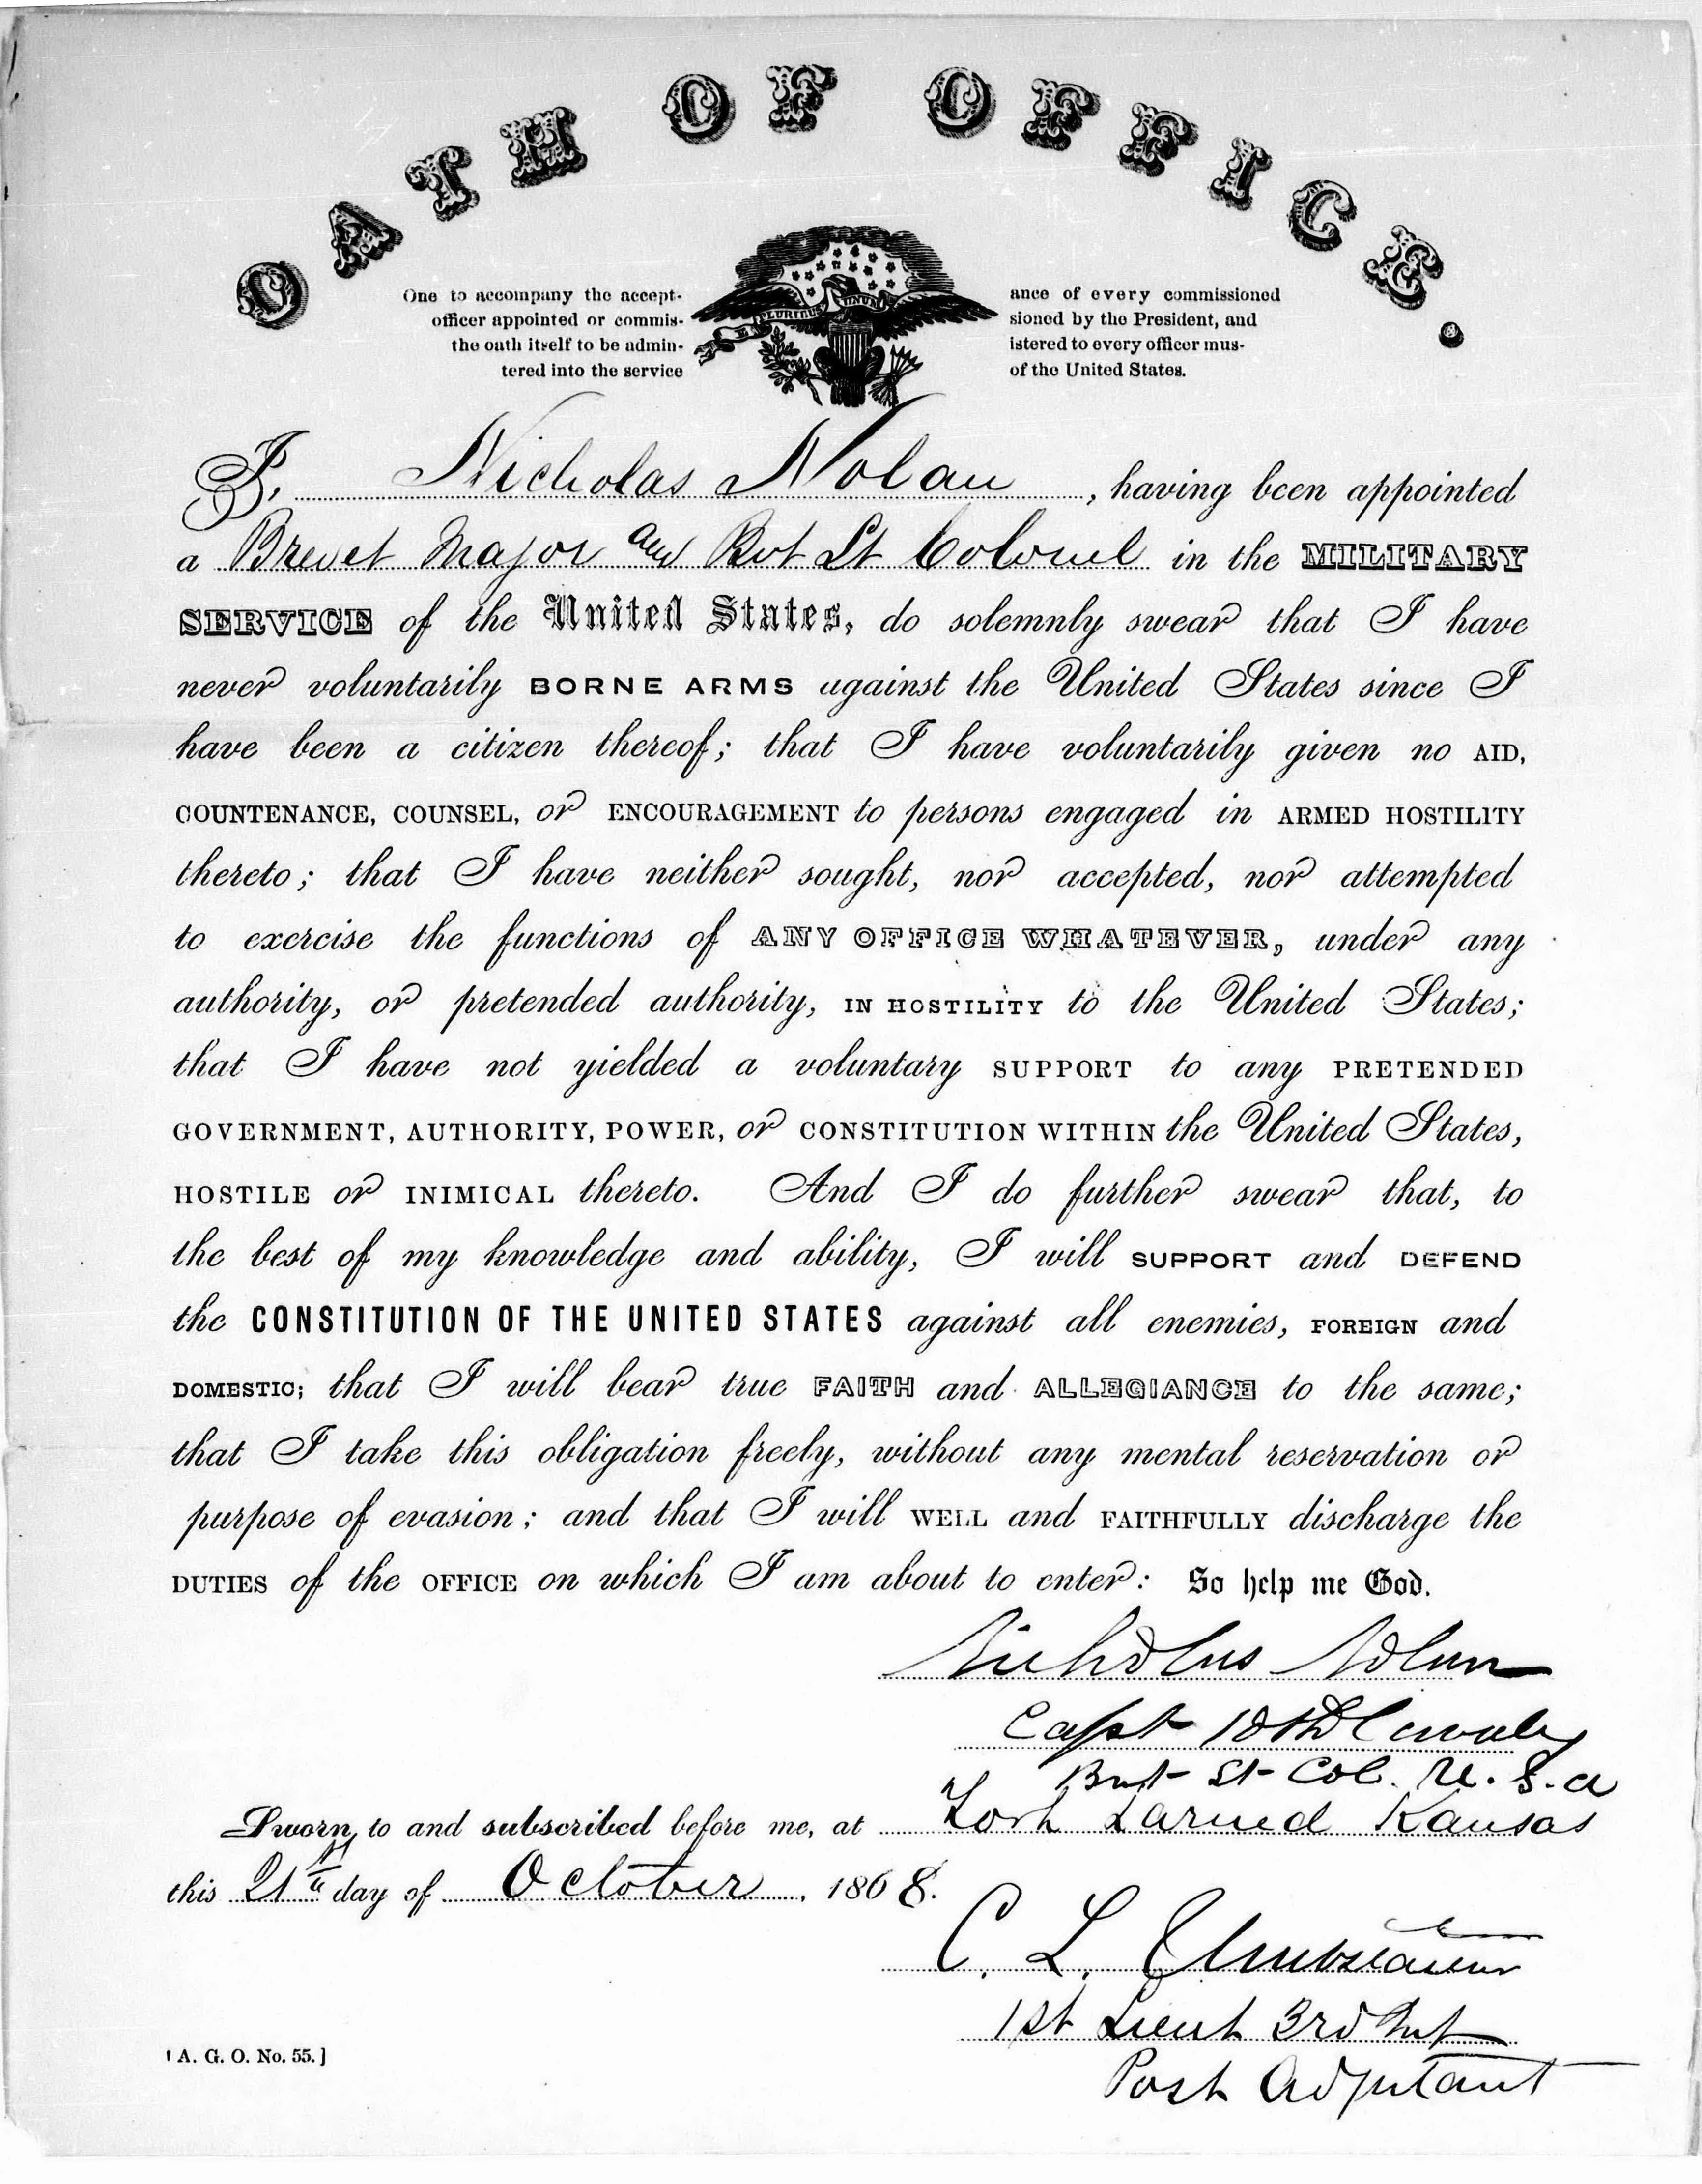 OATH OF OFFICE.
One to accompany the accept- ance of every commissioned
officer appointed or commis- sioned by the President, and
the oath itself to be admin- istered to every officer mus-
tered into the service of the United States.
E PLURIBUS UNUM
I, Nicholas Nolan, having been appointed
a Brevet Major and Bvt Lt Colonel in the MILITARY
SERVICE of the United States, do solemnly swear that I have
never voluntarily BORNE ARMS against the United States since I
have been a citizen thereof; that I have voluntarily given no AID,
COUNTENANCE, COUNSEL, or ENCOURAGEMENT to persons engaged in ARMED HOSTILITY
thereto; that I have neither sought, nor accepted, nor attempted
to exercise the functions of ANY OFFICE WHATEVER, under any
authority, or pretended authority, IN HOSTILITY to the United States;
that I have not yielded a voluntary SUPPORT to any PRETENDED
GOVERNMENT, AUTHORITY, POWER, or CONSTITUTION WITHIN the United States,
HOSTILE or INIMICAL thereto. And I do further swear that, to
the best of my knowledge and ability, I will SUPPORT and DEFEND
the CONSTITUTION OF THE UNITED STATES against all enemies, FOREIGN and
DOMESTIC; that I will bear true FAITH and ALLEGIANCE to the same;
that I take this obligation freely, without any mental reservation or
purpose of evasion; and that I will WELL and FAITHFULLY discharge the
DUTIES of the OFFICE on which I am about to enter: So help me God.
Nicholas Nolan
Capt 10th Cavalry
Bvt Lt Col. U.S.A
Sworn to and subscribed before me, at Fort Larned Kansas
this 21st day of October, 1868.
C. L.
1st Lieut 3rd Inf
Post Adjutant
[A. G. O. No. 55.]